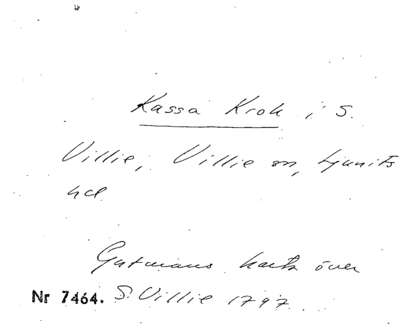 Kassa Krok i S.
Villie, Villie sn, Ljunits
hd.
Gutmans karta över
Nr 7464. S. Villie 1797.